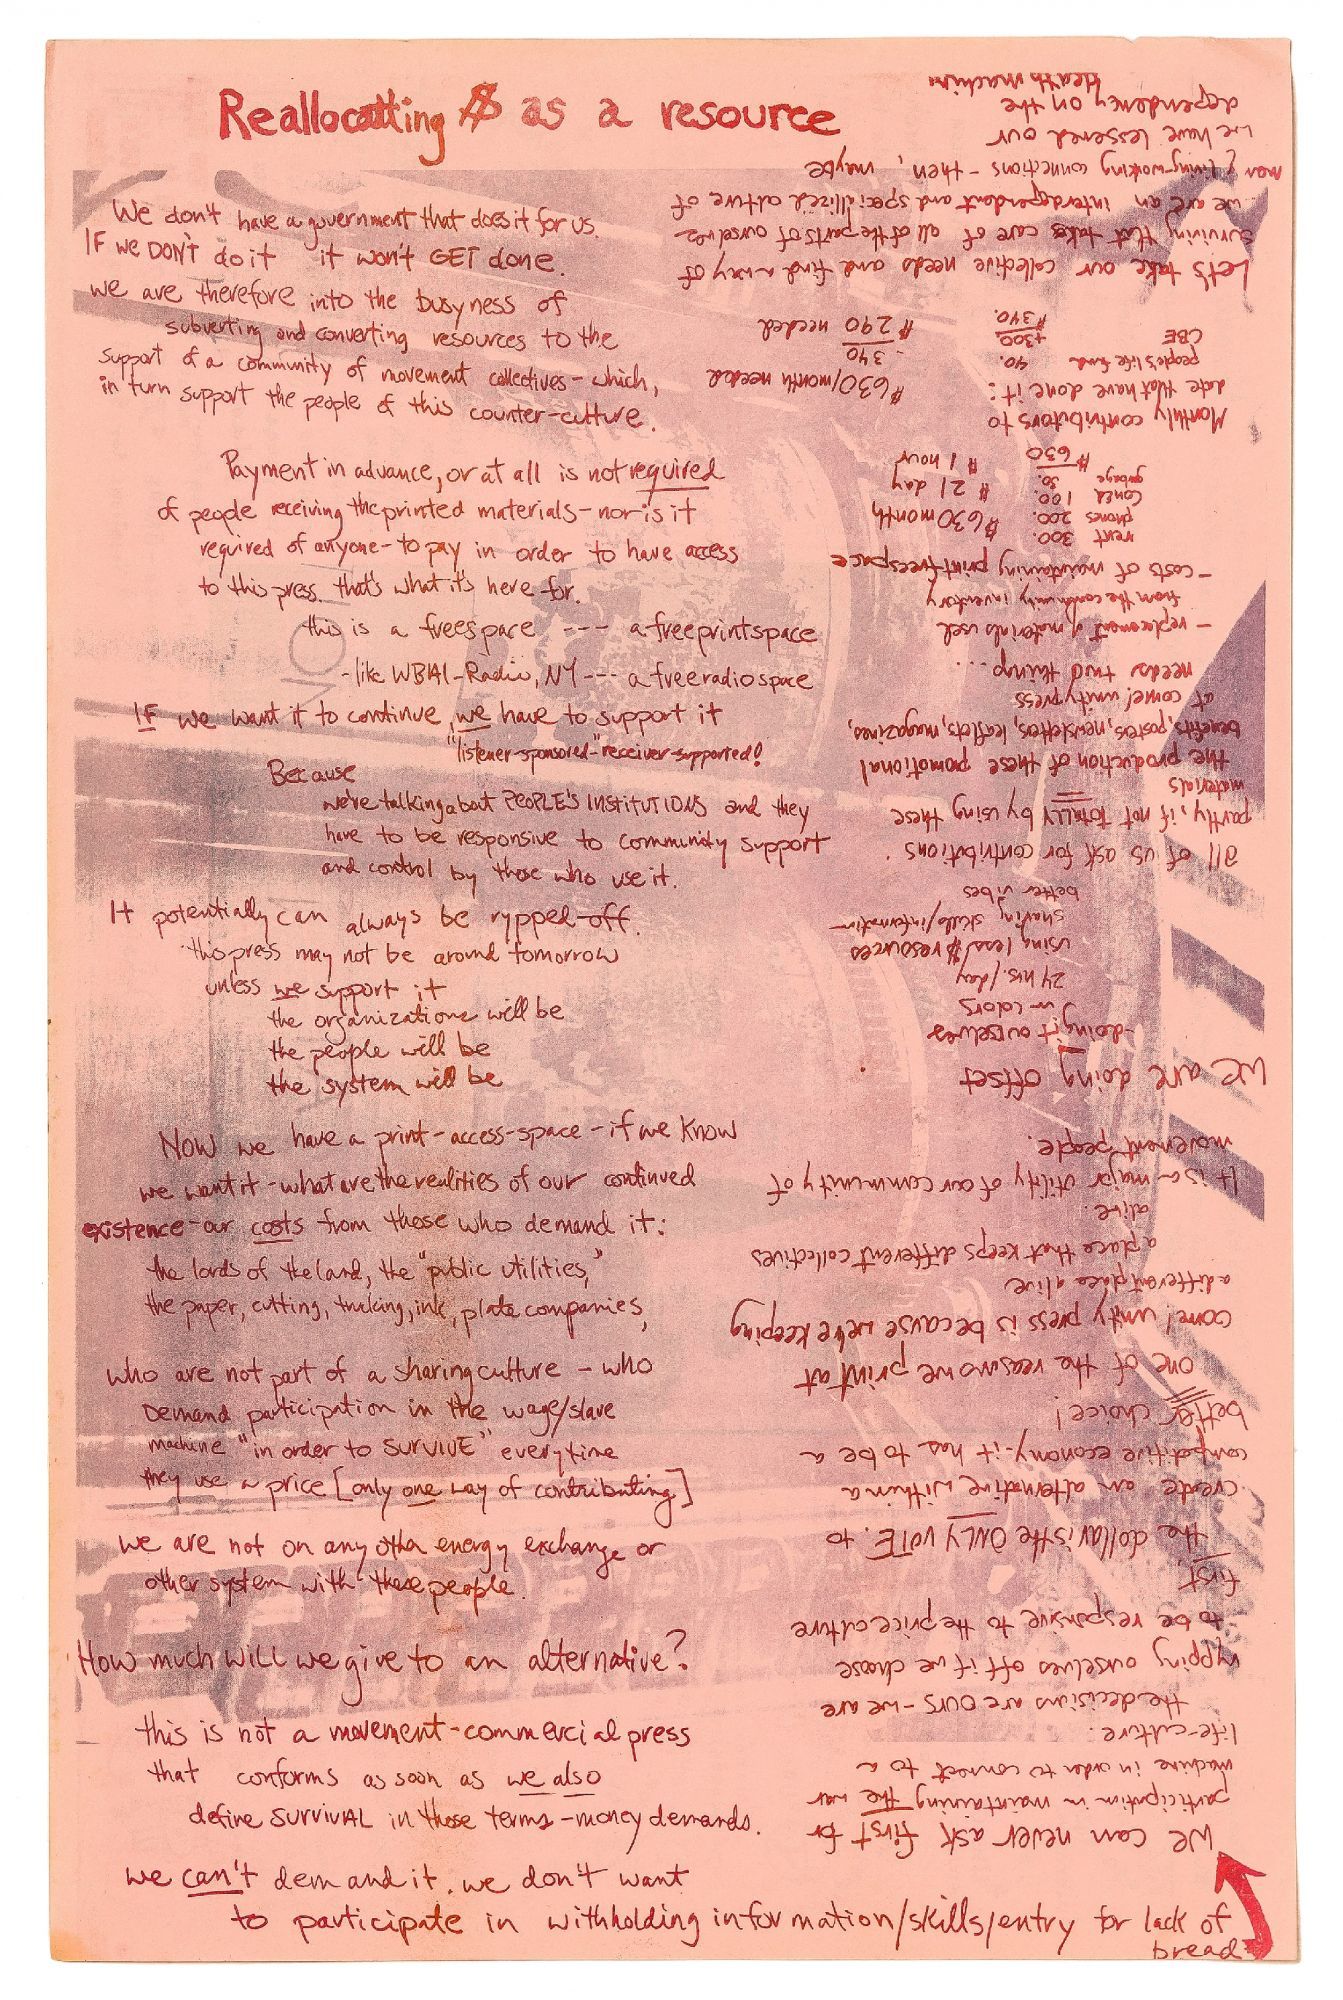 Reallocatting $ as a resource
We don't have a government that does it for us.
IF we DON'T do it it won't GET done.
we are therefore into the busyness of
subverting and converting resources to the
support of a community of movement collectives - which,
in turn support the people of this counter-culture.
Payment in advance, or at all is not required
of people receiving the printed materials - nor is it
required of anyone - to pay in order to have access
to this press. that's what it's here for.
this is a freespace --- a freeprintspace
- like WBAI - Radio, NY --- a freeradiospace
IF we want it to continue, we have to support it
"listener-sponsored" receiver-supported!
Because
we're talking about PEOPLE'S INSTITUTIONS and they
have to be responsive to community support
and control by those who use it.
It potentially can always be rypped-off.
this press may not be around tomorrow
unless we support it
the organizations will be
the people will be
the system will be
Now we have a print-access-space - if we know
we want it - what are the realities of our continued
existence - our costs from those who demand it:
the lords of the land, the "public utilities,"
the paper, cutting, trucking, ink, plate companies,
who are not part of a sharing culture - who
demand participation in the wage/slave
machine "in order to SURVIVE" everytime
they use a price [only one way of contributing]
we are not on any other energy exchange or
other system with these people.
How much will we give to an alternative?
this is not a movement-commercial press
that conforms as soon as we also
define SURVIVAL in those terms - money demands.
we can't demand it. we don't want
to participate in withholding information/skills/entry for lack of
bread
we can never ask first for
participation in maintaining the war
machine in order to connect to a
life-culture.
the decisions are OURS - we are
rypping ourselves off if we choose
to be responsive to the price culture
first.
the dollar is the ONLY VOTE. to
create an alternative within a
competitive economy - it has to be a
better choice!
one of the reasons we print at
come! unity press is because we're keeping
a different place alive
a place that keeps different collectives
alive.
It is a major utility of our community of
movement people.
we are doing offset
- doing it ourselves
in colors
24 hrs./day
using less/$ resources
sharing skills/information
better vibes
all of us ask for contributions
partly, if not TOTALLY by using these
materials
the production of these promotional
benefits, posters, newsletters, leaflets, magazines,
at come! unity press
needs two things...
- replacement of materials used
from the community inventory
- costs of maintaining print freespace
rent 300.
phones 200. $630 month
coned 100. $21 day
garbage 30. $1 hour
$630
Monthly contributors to
date that have done it:
people's life fund 40. $630/month needed
CBE +300. - 340
$340. $290 needed
Let's take our collective needs and find a way of
surviving that takes care of all of the parts of ourselves
... we are an interdependent and specialized culture of
living-working connections - then, maybe
we have lessened our
dependency on the
death machine